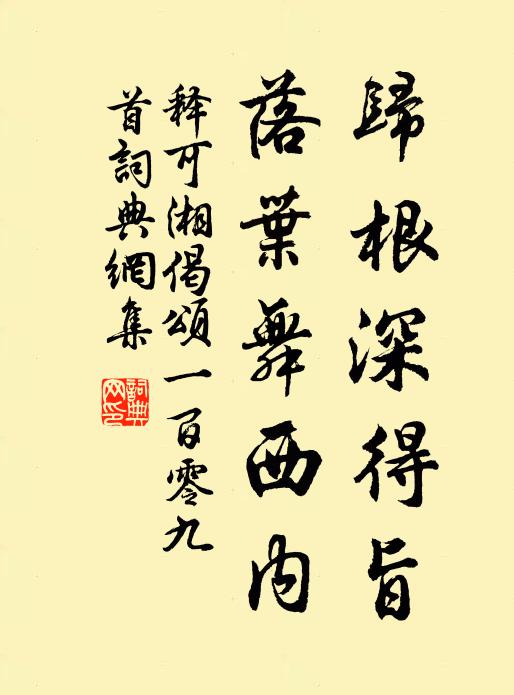 歸根深得旨
落葉舞西内
释可湘偈頌一百零九
首詞典網集
詞典网印